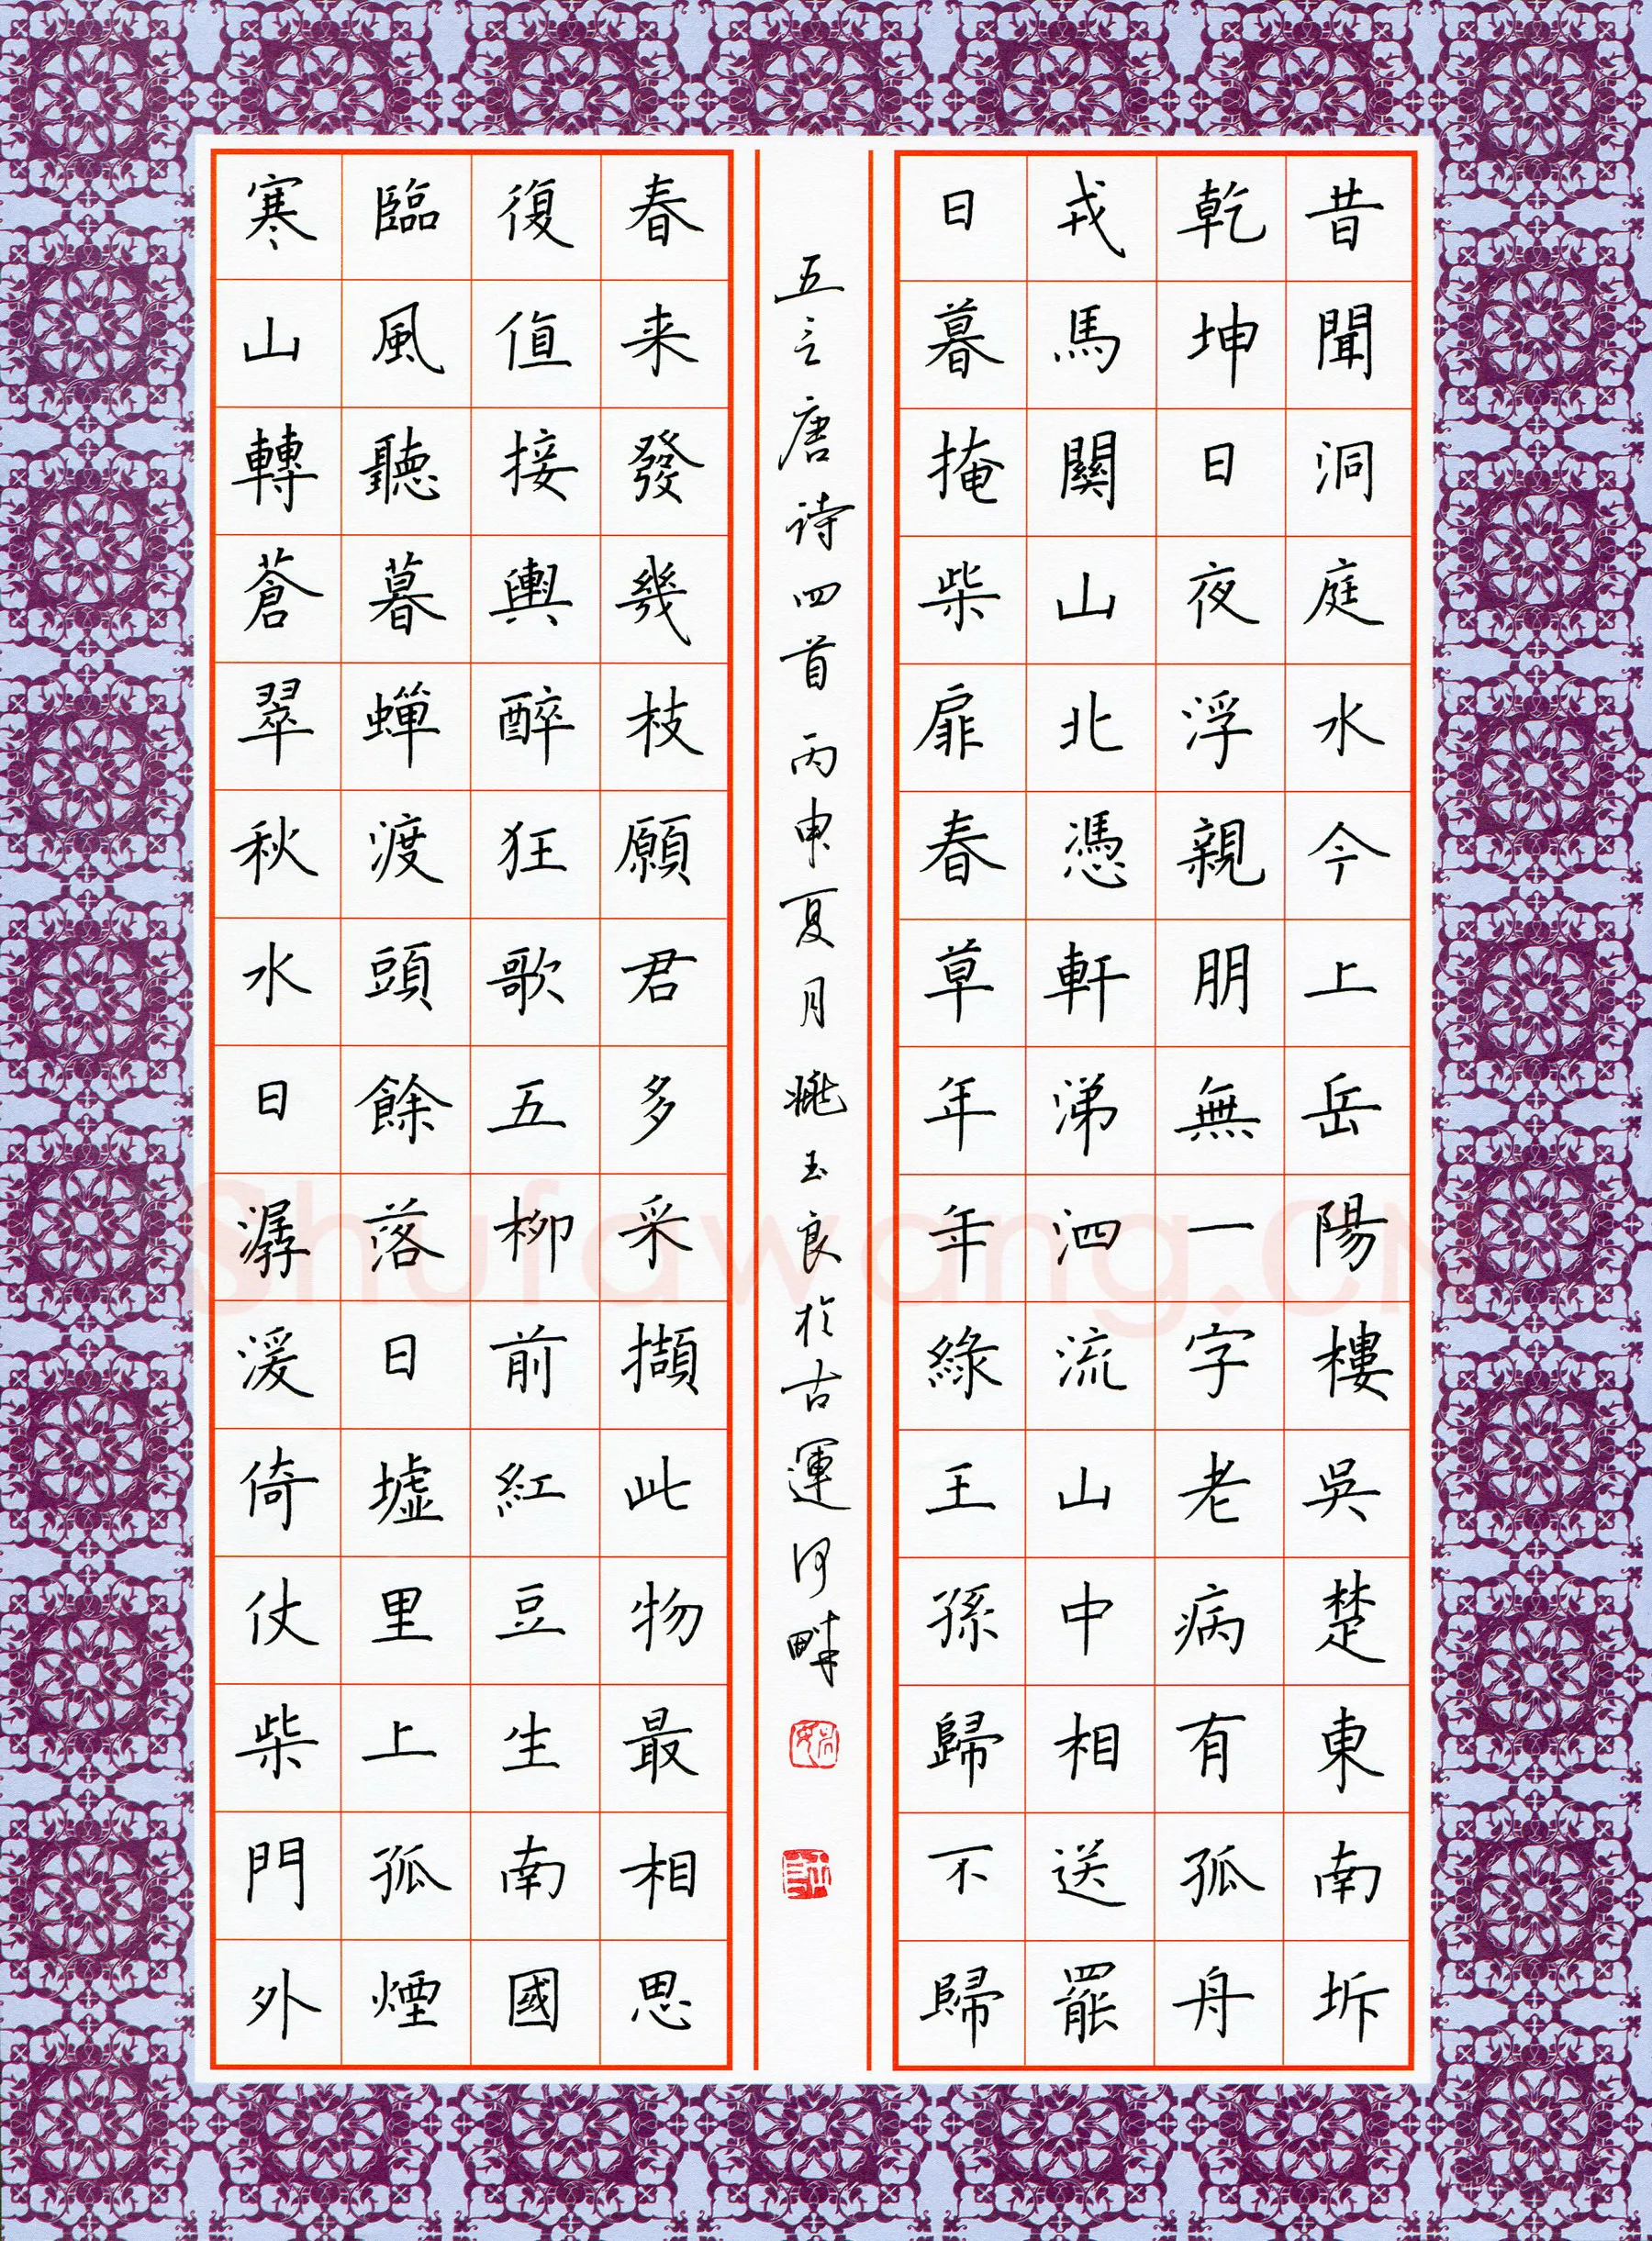 昔聞洞庭水今上岳陽樓吳楚東南坼
乾坤日夜浮親朋無一字老病有孤舟
戎馬關山北憑軒涕泗流山中相送罷
日暮掩柴扉春草年年綠王孫歸不歸
寒山轉蒼翠秋水日潺湲倚仗柴門外
臨風聽暮蟬渡頭餘落日墟里上孤煙
復值接輿醉狂歌五柳前紅豆生南國
春来發幾枝願君多采擷此物最相思
五言唐诗四首丙申夏月姚玉良於古運河畔
Shufawang.CN